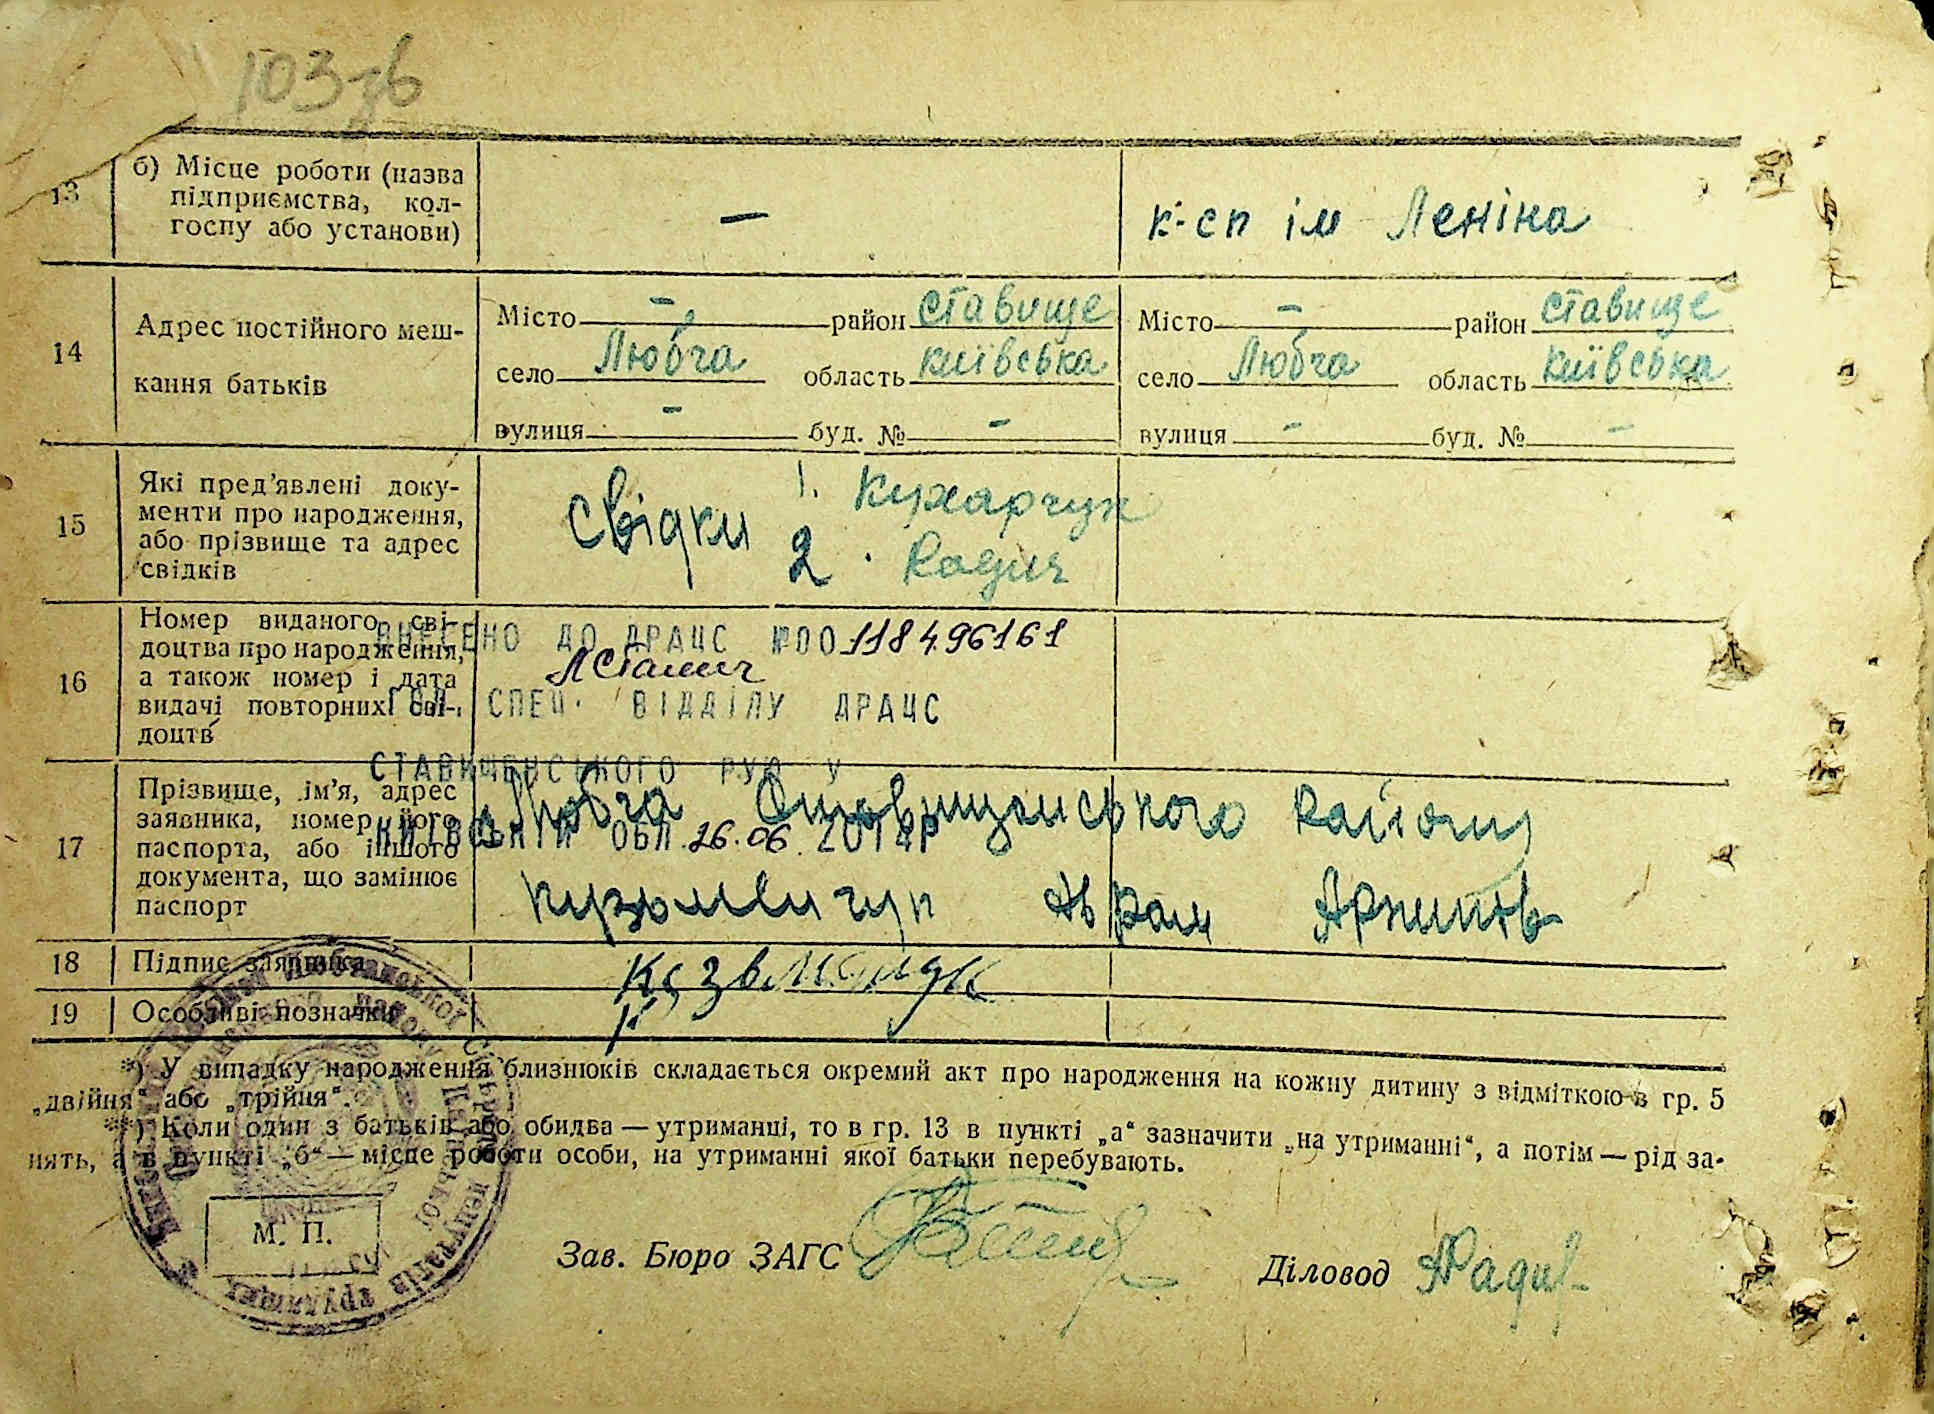 103зв
13
б) Місце роботи (назва
підприємства, кол-
госпу або установи)
—
к-сп ім Леніна
14
Адрес постійного меш-
кання батьків
Місто — район Ставище
село Любча область Київська
вулиця — буд. № —
Місто — район Ставище
село Любча область Київська
вулиця — буд. № —
15
Які пред’явлені доку-
менти про народження,
або прізвище та адрес
свідків
Свідки 1. Кухарчук
2. Радич
16
Номер виданого сві-
доцтва про народження,
а також номер і дата
видачі повторних сві-
доцтв
ВНЕСЕНО ДО ДРАЦС №00118496161
ГОЛ. СПЕЦ. ВІДДІЛУ ДРАЦС
СТАВИЩЕНСЬКОГО РУЮ У
КИЇВСЬКІЙ ОБЛ. 26.06.2012р
17
Прізвище, ім’я, адрес
заявника, номер його
паспорта, або іншого
документа, що замінює
паспорт
Любча Ставищанського району
Кузьмінчук Аврам Архипів
18
Підпис заявника
19
Особливі позначки
*) У випадку народження близнюків складається окремий акт про народження на кожну дитину з відміткою в гр. 5
„двійня“ або „трійня“.
**) Коли один з батьків або обидва — утриманці, то в гр. 13 в пункті „а“ зазначити „на утриманні“, а потім — рід за-
нять, а в пункті „б“ — місце роботи особи, на утриманні якої батьки перебувають.
М. П.
Зав. Бюро ЗАГС
Діловод